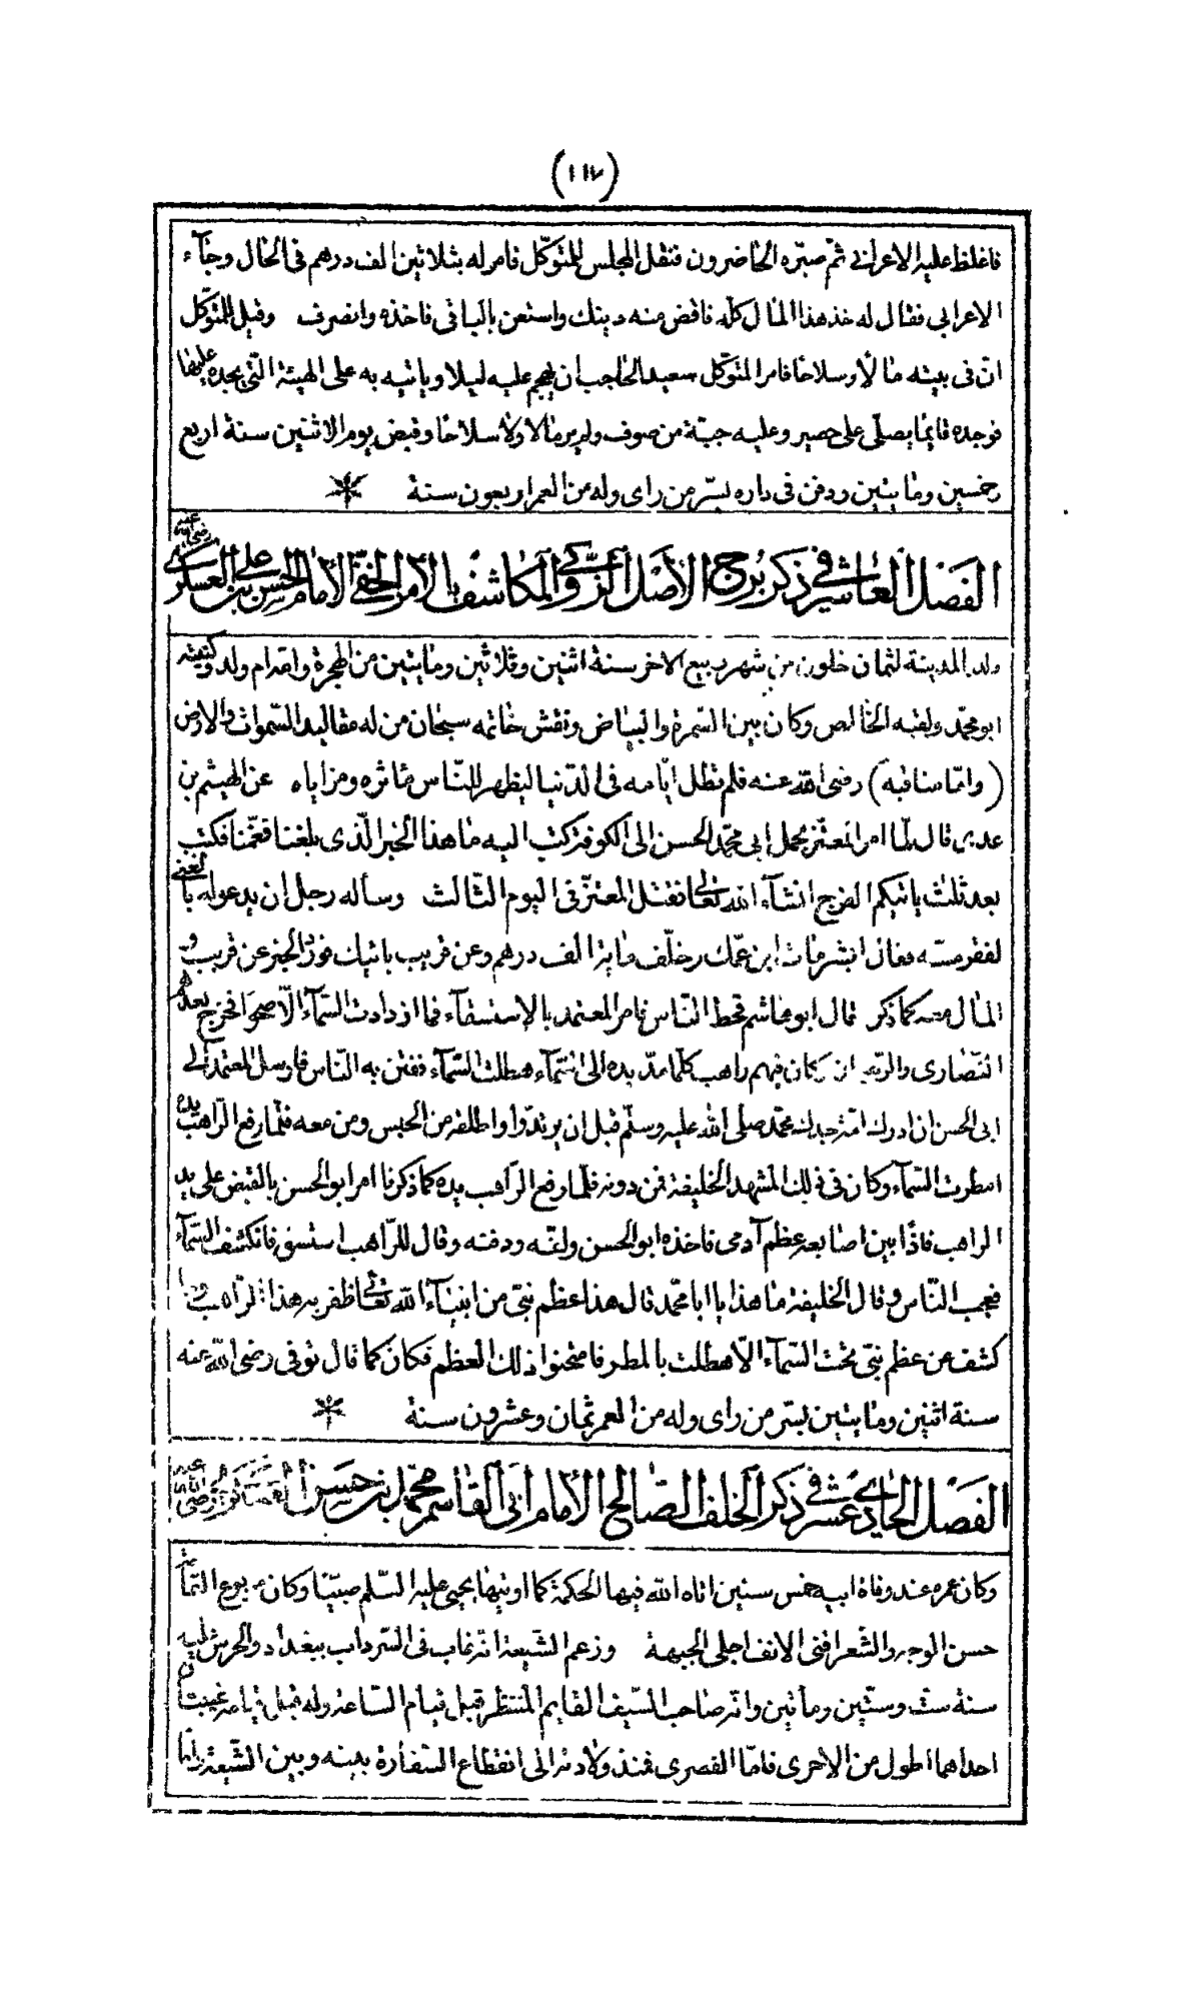 (١١٧)
فاغلظ عليه الاعرابي ثم صبّره الحاضرون فنقل المجلس للمتوكّل فامر له بثلاثين الف درهم فى الحال وجآء
الاعرابي فقال له خذ هذا المال كلّه فاقض منه دينك واستعن بالباقى فاخذه وانصرف وقيل للمتوكّل
انّ فى بيته مالا وسلاحا فامر المتوكّل سعيد الحاجب ان يهجم عليه ليلا وياتيه به على الهيئة التى يجده عليها
فوجده قايما يصلّى على حصير وعليه جبّة من صوف ولم ير مالا ولا سلاحا وقبض يوم الاثنين سنة اربع
وخمسين ومايتين ودفن فى داره بسرّ من راى وله من العمر اربعون سنة
الفصل العاشر في ذكر برج الأصل الزكي والمكاشف بالأمر الخفي الإمام الحسن بن علي العسكري رضي الله عنه
ولد بالمدينة لثمان خلون من شهر ربيع الاخر سنة اثنين وثلاثين ومايتين من الهجرة وامه ام ولد وكنيته
ابو محمّد ولقبه الخالص وكان بين السّمرة والبياض ونقش خاتمه سبحان من له مقاليد السّموات والارض
(وامّا مناقبه) رضى الله عنه فلم تطل ايّامه فى الدّنيا ليظهر للنّاس مآثره ومزاياه عن الهيثم بن
عدى قال لمّا امر المعتزّ بحمل ابى محمّد الحسن الى الكوفة كتب اليه ما هذا الخبر الّذى بلغنا فغمّنا فكتب
بعد ثلث ياتيكم الفرج انشآء الله تعالى فقتل المعتزّ فى اليوم الثّالث وسأله رجل ان يدعو له بالغنى
لفقر مسّه فقال ابشر مات ابن عمّك وخلّف ماية الف درهم وعن قريب ياتيك فورد الخبر عن قريب و
المال معه كما ذكر قال ابو هاشم قحط النّاس فامر المعتمد بالإستسقآء فما ازدادت السّمآء الّا صحوا فخرج بعدهم
النّصارى والرّهبان وكان فيهم راهب كلّما مدّ يده الى السّمآء هطلت السّمآء ففتن به النّاس فارسل المعتمد الى
ابى الحسن ان ادرك امّة جدك محمّد صلى الله عليه وسلّم قبل ان يرتدّوا واطلقه من الحبس ومن معه فلمّا رفع الرّاهب يده
امطرت السّمآء وكان فى ذلك المشهد الخليفة فمن دونه فلمّا رفع الرّاهب يده كما ذكرنا امر ابو الحسن بالقبض على يد
الراهب فاذا بين اصابعه عظم آدمى فاخذه ابو الحسن ولفّه ودفنه وقال للرّاهب استسق فانكشف السّمآء
فعجب النّاس وقال الخليفة ما هذا يا ابا محمّد قال هذا عظم نبىّ من انبيآء الله تعالى ظفر به هذا الرّاهب وما
كشف عن عظم نبىّ تحت السّمآء الّا هطلت بالمطر فامتحنوا ذلك العظم فكان كما قال توفى رضى الله عنه
سنة اثنين ومايتين بسرّ من راى وله من العمر ثمان وعشرون سنة
الفصل الحادي عشر في ذكر الخلف الصالح الإمام أبي القاسم محمد بن حسن العسكري رضي الله عنه
وكان عمره عند وفاة ابيه خمس سنين اتاه الله فيها الحكمة كما اوتيها يحيى عليه السّلم صبيّا وكان مربوع القامة
حسن الوجه والشّعر اقنى الانف اجلى الجبهة وزعم الشّيعة انّه غاب فى السّرداب ببغداد والحرس عليه
سنة ستّ وستّين ومأتين وانّه صاحب السّيف القايم المنتظر قبل قيام السّاعة وله قبل قيامه غيبتان
احداهما اطول من الاخرى فامّا القصرى فمنذ ولادته الى انقطاع السّفارة بينه وبين الشّيعة وامّا